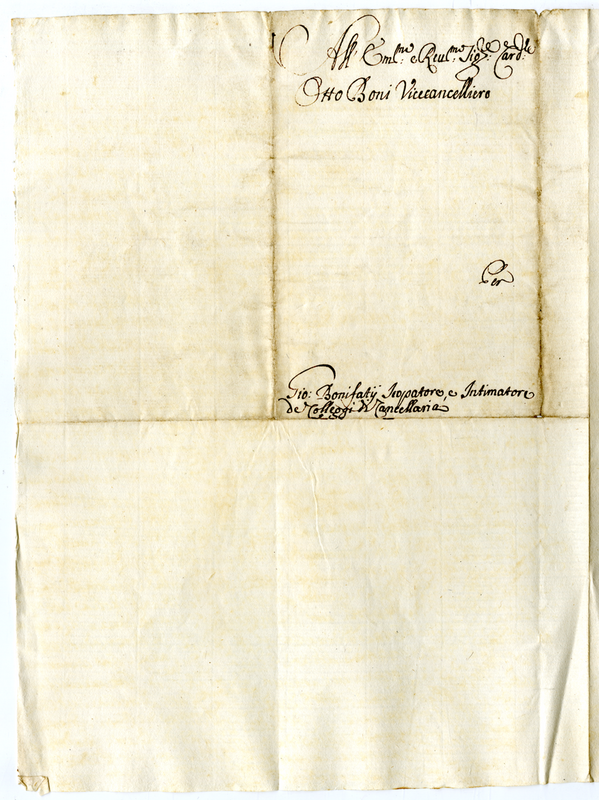 All' Em.mo e Reu.mo Sig.re Card.le
Otto Boni Vicecancelliero
Per
Gio: Bonifatij Scopatore, e Intimatore
de Colleggi di Cancellaria